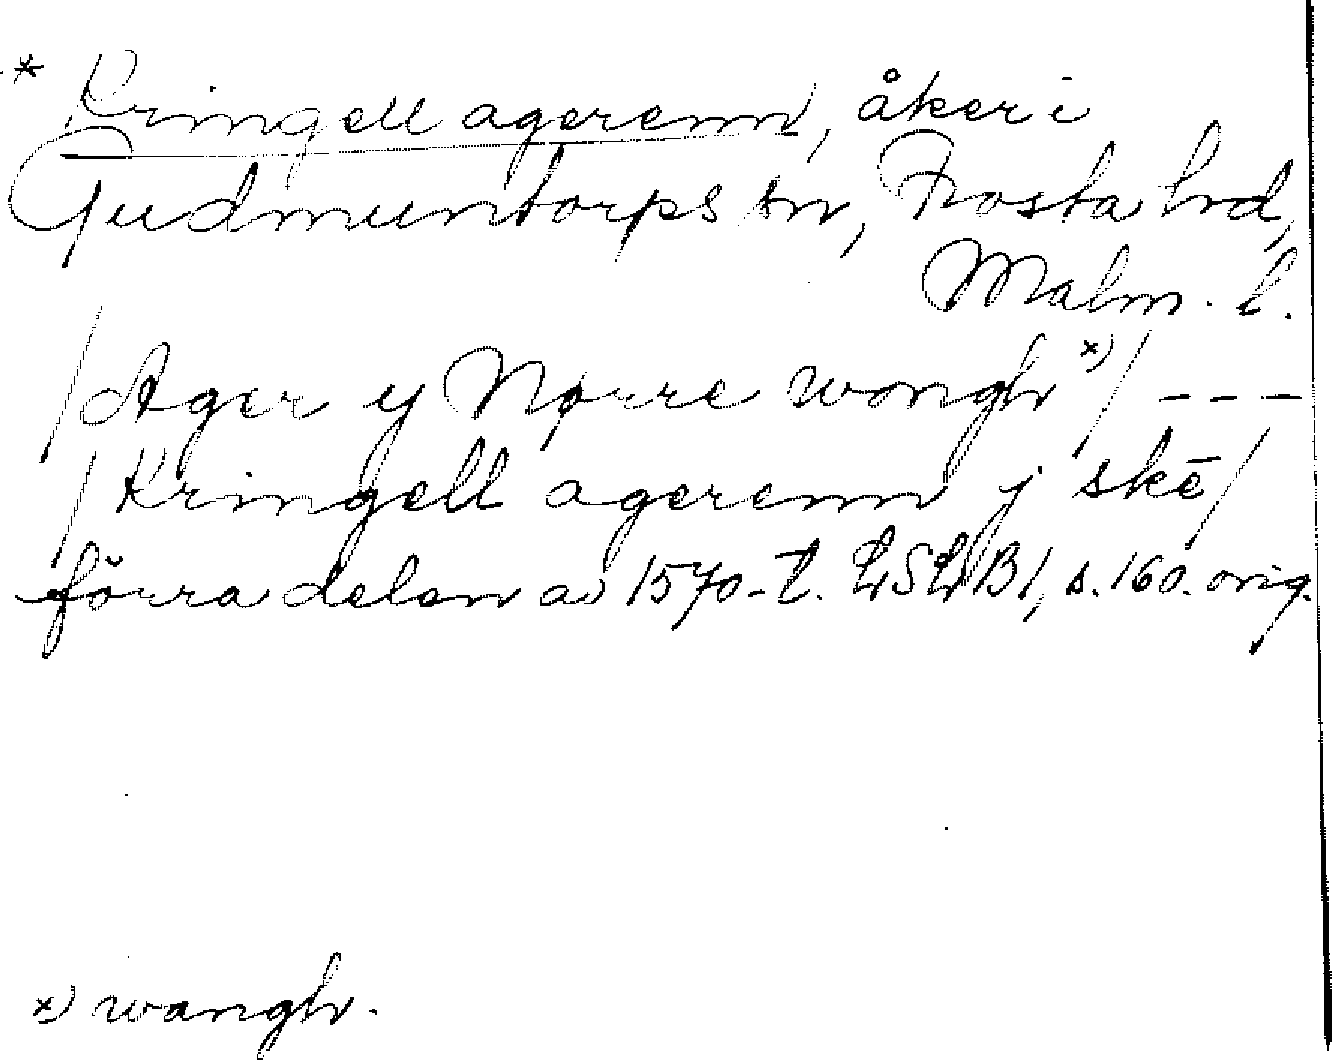 * Kringell agerenn, åker i
Gudmuntorps sn, Frosta hrd,
Malm. l.
/Ager y Nørre wongh x)/ ---
/Kringell agerenn j skē/
förra delen av 1570-t. LSLB1, s. 160. orig.
x) wangh.